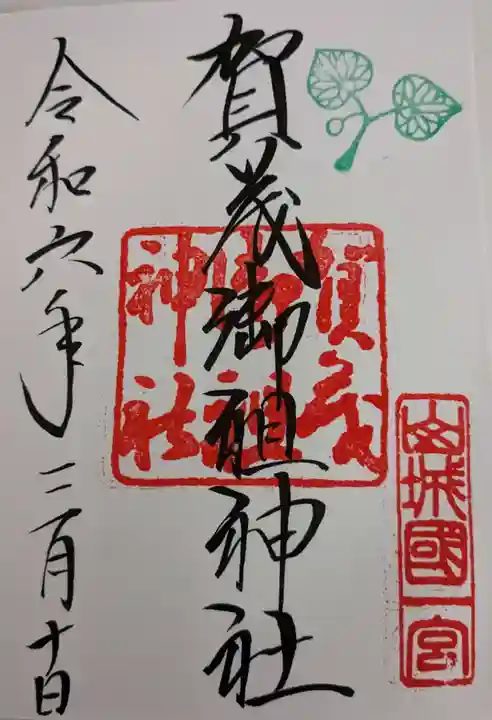 山城國一宮
賀茂御祖神社
賀茂御祖神社
令和六年三月十日